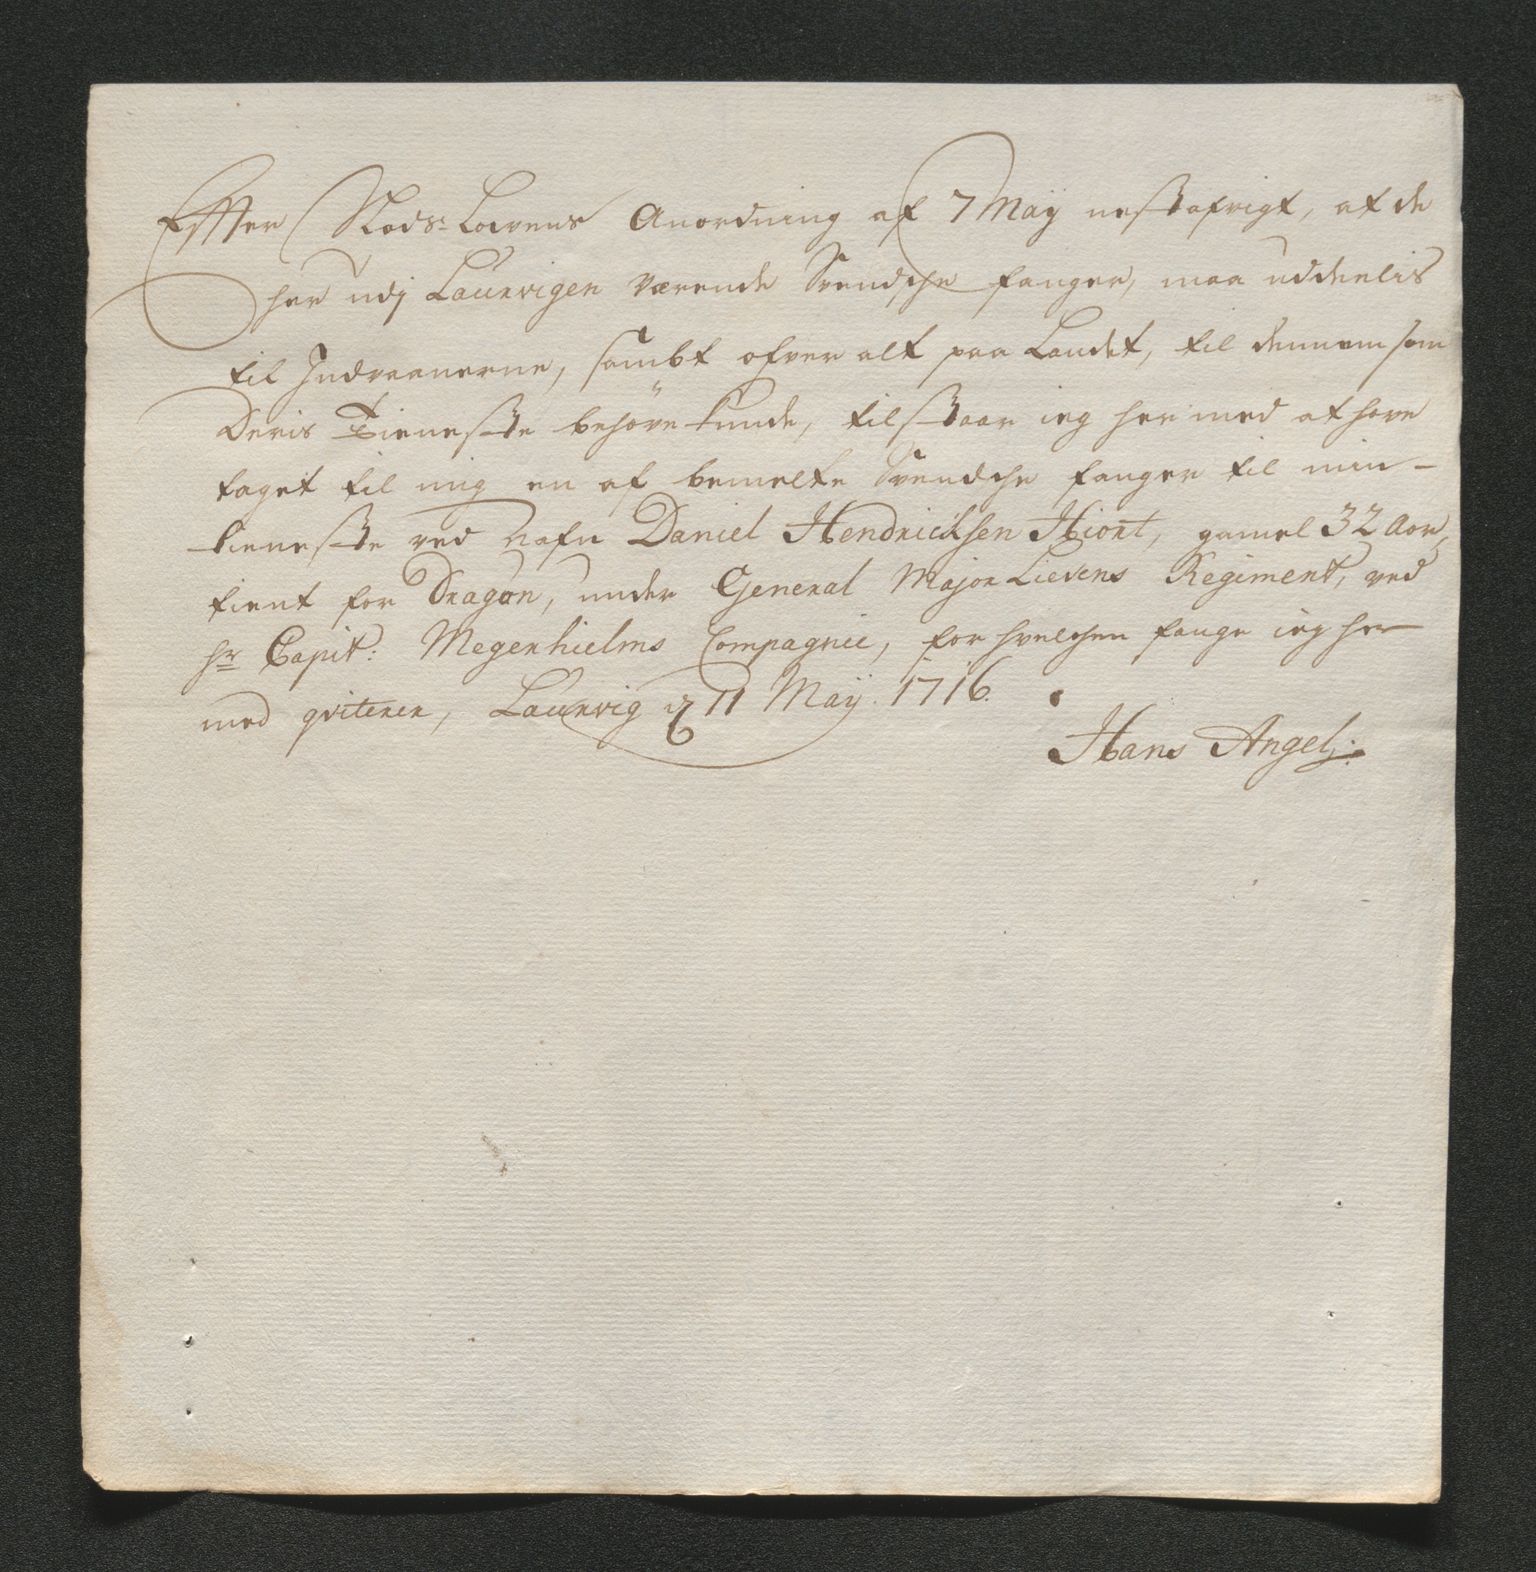 Effter Slods-Lovens Anordning af 7 Maÿ nestafvigt, at de
her udj Laurvigen værende Svendsche fanger, maa uddeelis
til Indvaanerne, sambt ofver alt paa Landet, til dennem som
Deris Tieneste behöve kunde, tilstaar ieg hermed at have
taget til mig en af bemelte Svendsche fanger til min
tieneste ved Nafn Daniel Hendrichsen Hiort, gamel 32 Aar,
tient for Dragon, under General Major Lievens Regiment, ved
hr Capit: Megenhielms Compagnie, for hvelchen fange ieg her
med qviterer, Laurvig d 11 Maÿ. 1716.
Hans Angelj: